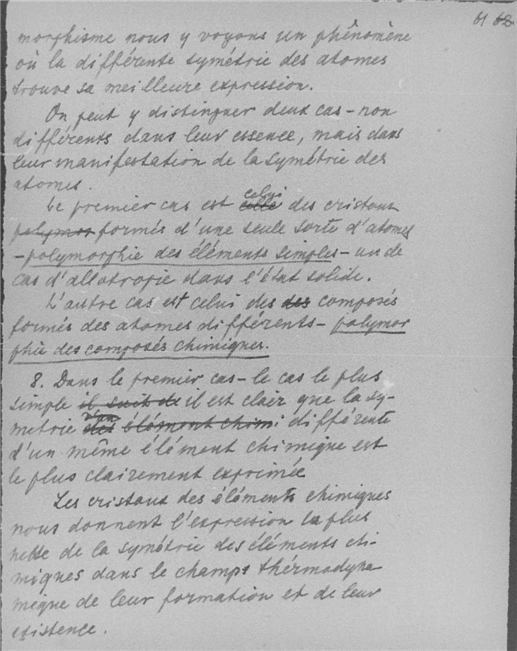 61 62
morphisme nous y voyons un phénomène
où la différente symétrie des atomes
trouve sa meilleure expression.
On peut y distinguer deux cas – non
différents dans leur essence, mais dans
leur manifestation de la symétrie des
atomes.
Le premier cas est celle celui des cristaux
polymor formés d'une seule sorte d'atomes
– polymorphie des éléments simples – un de
cas d'allotropie dans l'état solide.
L'autre cas est celui des des composés
formés des atomes différents – polymor
phie des composés chimiques.
8. Dans le premier cas – le cas le plus
simple il suit de il est clair que la sy-
metrie des élémont chimi différente
d'un même élément chimique est
le plus clairement exprimée
Les cristaux des éléments chimiques
nous donnent l'expression la plus
nette de la symétrie des éléments chi-
miques dans le champs thérmodyna
mique de leur formation et de leur
existence.